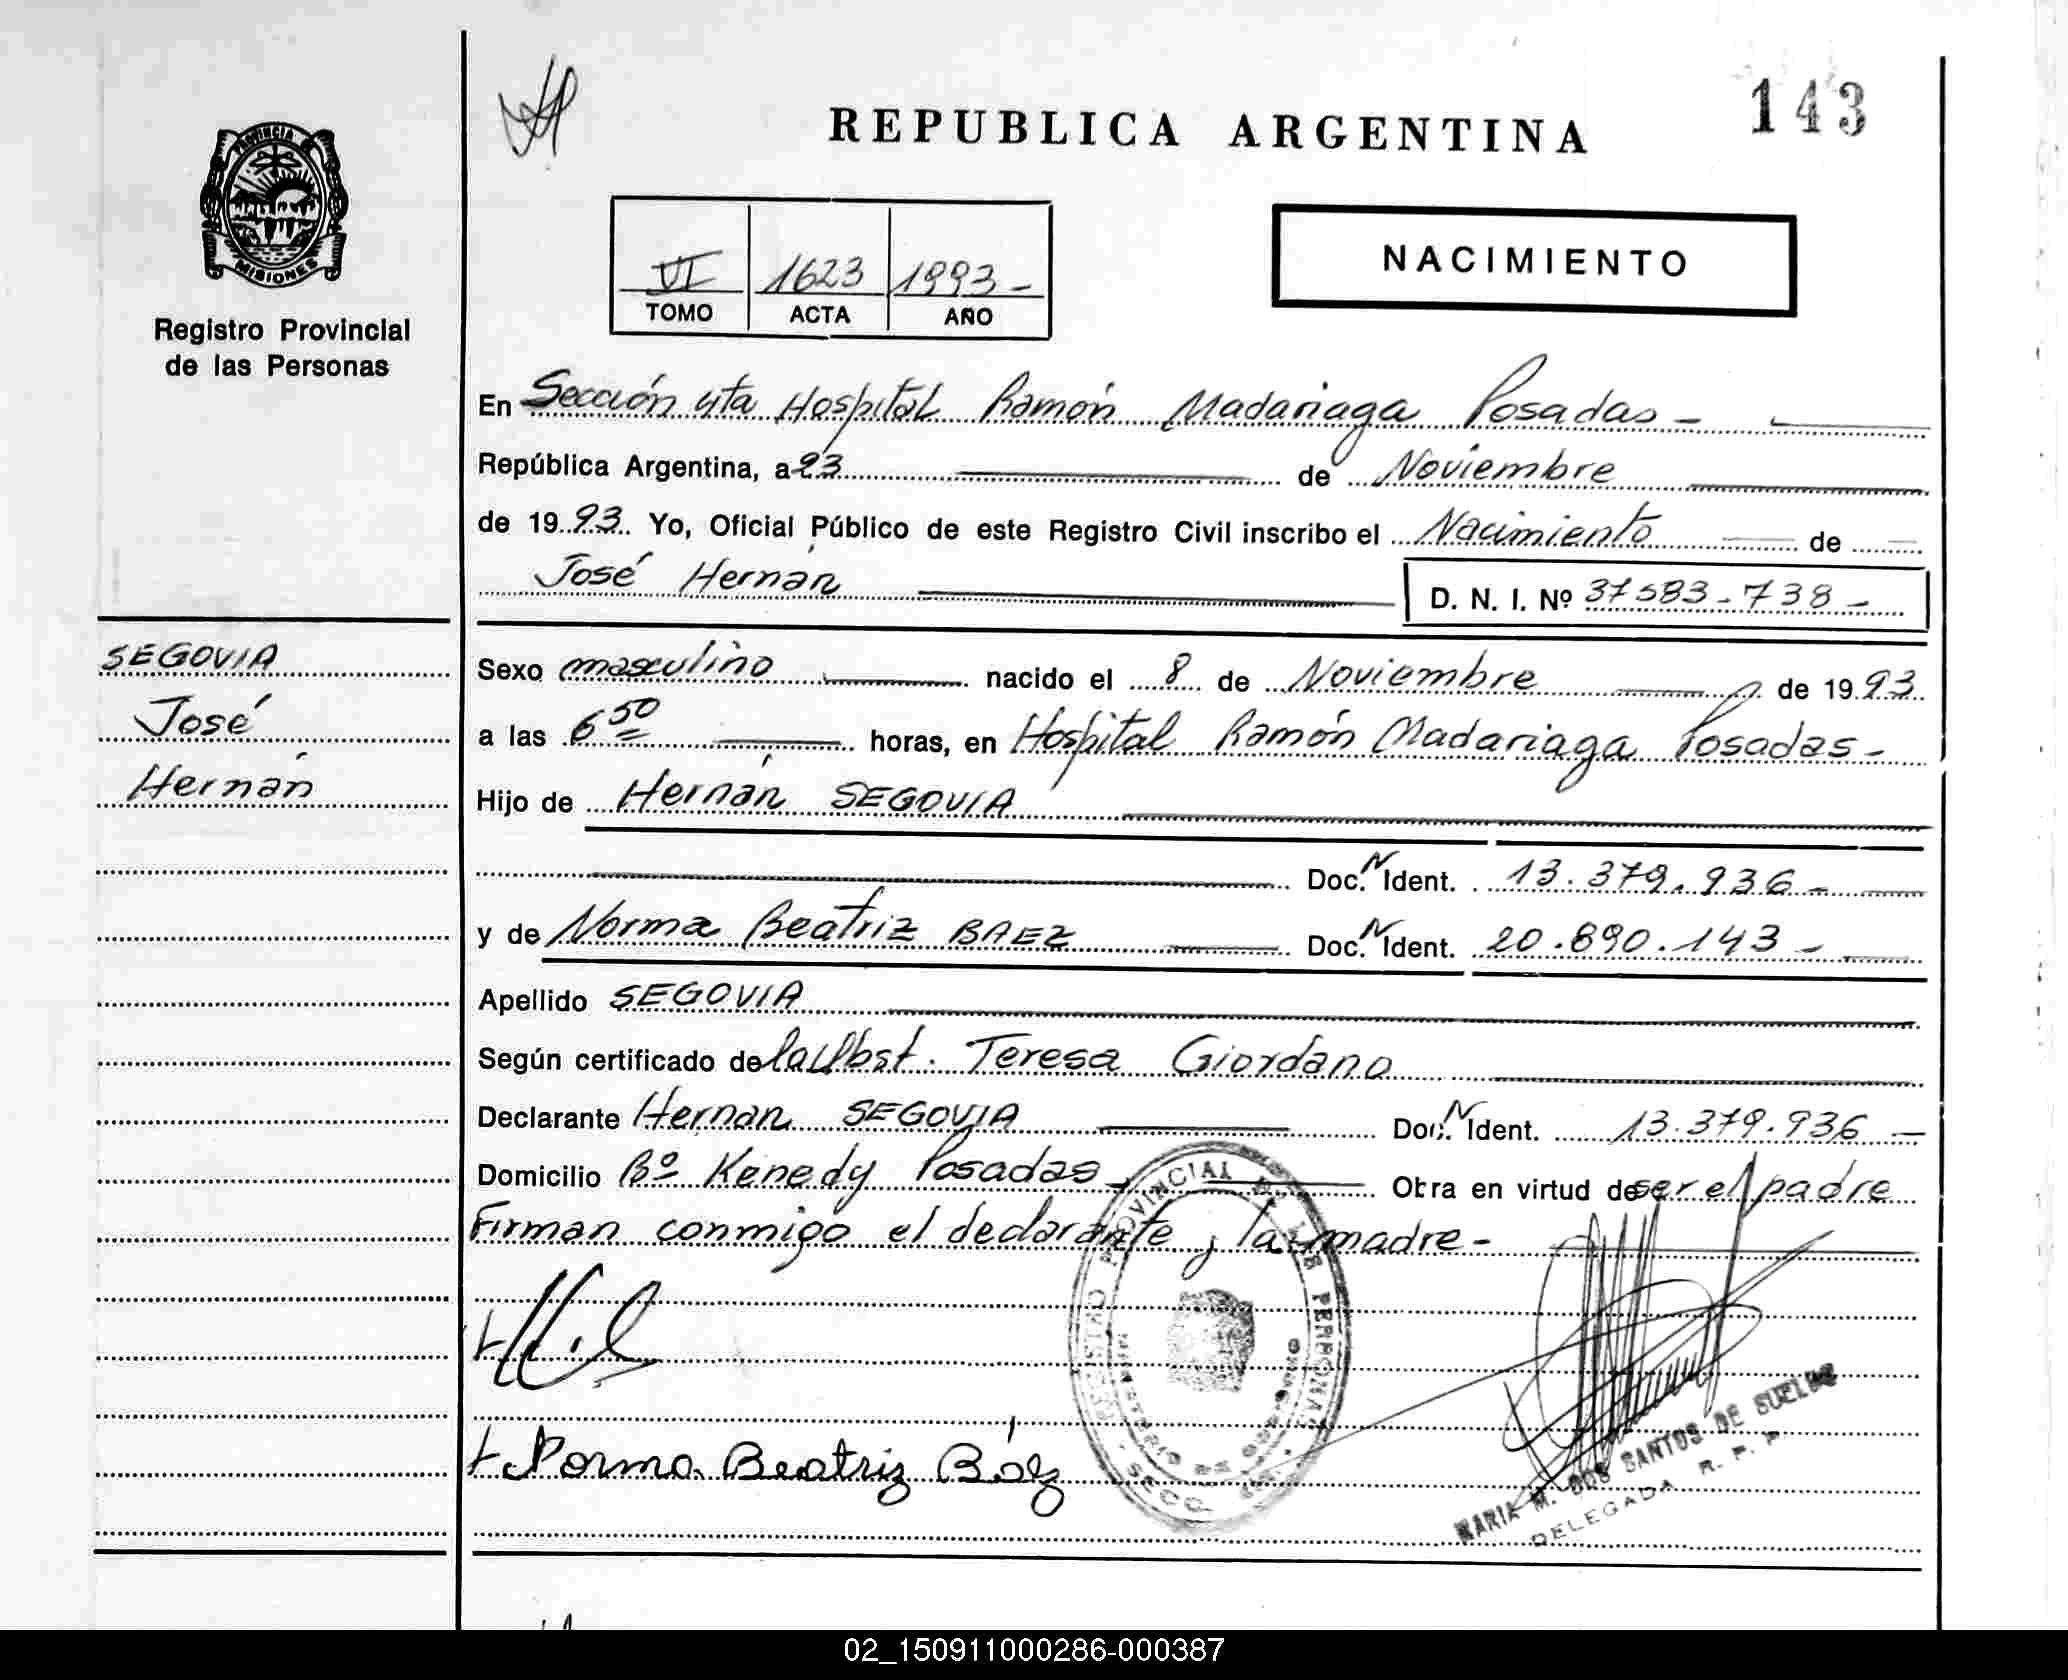 143
REPUBLICA ARGENTINA
PROVINCIA DE MISIONES
Registro Provincial
de las Personas
NACIMIENTO
VI 1623 1993-
TOMO ACTA AÑO
En Sección 4ta Hospital Ramón Madariaga Posadas -
República Argentina, a 23 de Noviembre
de 1993. Yo, Oficial Público de este Registro Civil inscribo el Nacimiento de
José Hernán
D. N. I. Nº 37583-738-
SEGOVIA
José
Hernán
Sexo masculino nacido el 8 de Noviembre de 1993
a las 6 50 horas, en Hospital Ramón Madariaga Posadas-
Hijo de Hernán SEGOVIA
Doc. N Ident. 13.379.936-
y de Norma Beatriz BAEZ Doc. N Ident. 20.890.143-
Apellido SEGOVIA
Según certificado de la Obst. Teresa Giordano
Declarante Hernan SEGOVIA Doc. N Ident. 13.379.936-
Domicilio Bº Kenedy Posadas- Obra en virtud de ser el padre
Firman conmigo el declarante y la madre-
Norma Beatriz Báez
REGISTRO PROVINCIAL DE LAS PERSONAS
MARIA M. DOS SANTOS DE SUELDO
DELEGADA R. P. P.
02_150911000286-000387